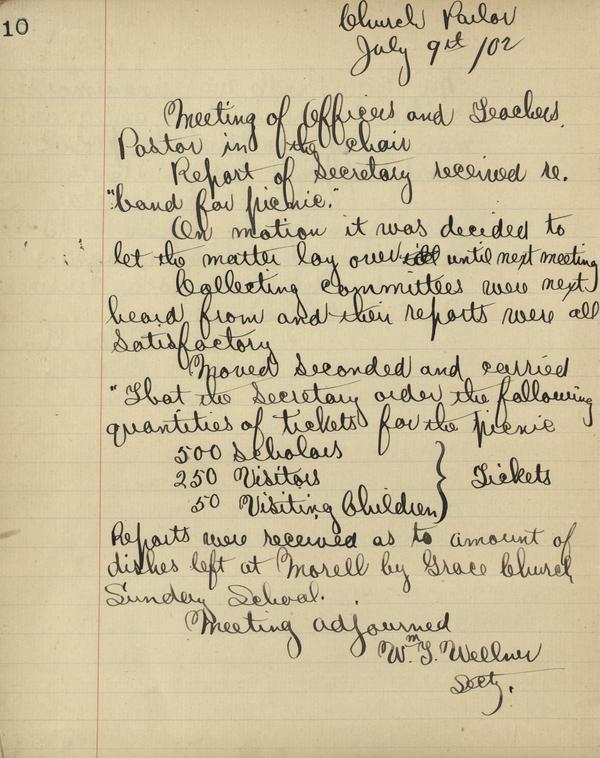 10
Church Parlor
July 9st /02
Meeting of Officers and Teachers.
Pastor in the chair
Report of Secretary received re.
"band for picnic."
On motion it was decided to
let the matter lay over until next meeting
Collecting committees were next
heard from and their reports were all
satisfactory
Moved seconded and carried
"That the Secretary order the following
quantities of tickets for the picnic
500 Scholars
250 Visitors } Tickets
50 Visiting Children
Reports were received as to amount of
dishes left at Morell by Grace Church
Sunday School.
Meeting adjourned
Wm. T. Wellner
Secty.